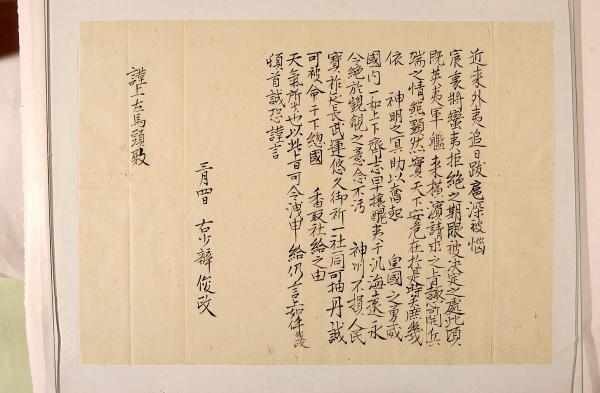 近来外夷追日跋扈深被悩
宸衷將蠻夷拒絶之期限被決定之處此頃
既英夷軍艦来横濱請求之旨趣許開兵
端之情態顯然實天下安危在於是時矣庶幾
依　神明之冥助以奮起　皇國之勇威
國内一和上下齊志早攘醜夷于汎海遠永
令絶於覬覦之意念不汚　神州不損人民
寶祚延長武運悠久御祈一社一同可抽丹誠
可被命于下總國　香取社給之由
天氣所候也以此旨可令洩申　給仍言上如件俊政
頓首誠恐謹言
三月四日　右少辨俊政
謹上左馬頭殿